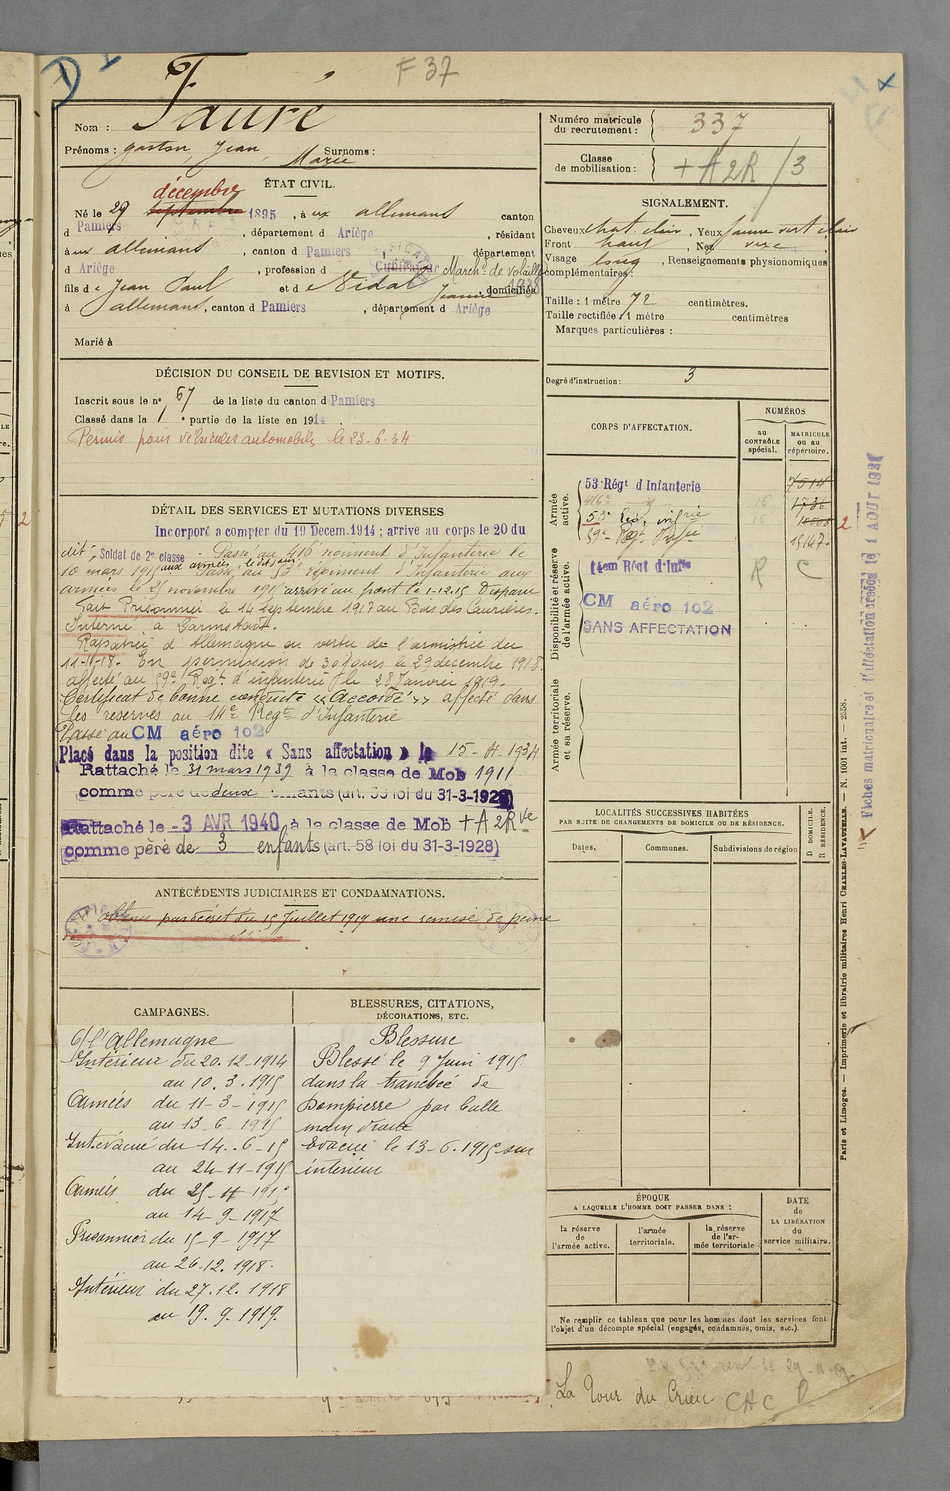 F 37
Fauré
Nom :
Prénoms : gaston, Jean, Marie Surnoms :
ÉTAT CIVIL.
décembre
Né le 29 septembre 1895, à ux allemans canton
d Pamiers, département d Ariège, résidant
à ux allemans, canton d Pamiers, département
d Ariège, profession d Cultivateur Marchd de volailles
1938
fils de Jean Paul et de Vidal Jeanne, domiciliés
à allemans, canton d Pamiers, département d Ariège
Marié à
DÉCISION DU CONSEIL DE REVISION ET MOTIFS.
Inscrit sous le n° 67 de la liste du canton d Pamiers
Classé dans la 1e partie de la liste en 1914.
Permis pour véhicules automobiles le 23-6-34
DÉTAIL DES SERVICES ET MUTATIONS DIVERSES
Incorporé a compter du 19 Decem.1914; arrivé au corps le 20 du
dit, Soldat de 2e classe. Passé au 416e régiment d'Infanterie le
10 mars 1915 aux armées le dit jour Passé au 53e régiment d'Infanterie aux
armées le 25 novembre 1915 arrivé au front le 1-12-15 Disparu
Fait Prisonnier le 14 Septembre 1917 au Bois des Caurières.
Interné à Darmstadt.
Rapatrié d'Allemagne en vertu de l'armistice du
11-11-18. En permission de 30 jours le 29 décembre 1918
affecté au 59e Régt d'infanterie le 28 Janvier 1919.
Certificat de bonne conduite « Accordé » affecté dans
les réserves au 14e Regt d'Infanterie
Passé au CM aéro 102
Placé dans la position dite « Sans affectation » le 15-4-1934
Rattaché le 31 mars 1939 à la classe de Mob 1911
comme père de deux enfants (art. 58 loi du 31-3-1928)
Rattaché le -3 AVR 1940 à la classe de Mob + A 2 Rve
comme père de 3 enfants (art. 58 loi du 31-3-1928)
ANTÉCÉDENTS JUDICIAIRES ET CONDAMNATIONS.
obtenu par décret du 15 Juillet 1919 une remise de peine
CAMPAGNES.
C/ l'Allemagne
Intérieur du 20.12.1914
au 10.3.1915
Armées du 11-3-1915
au 13-6-1915
Int.évacué du 14.6-15
au 24-11-1915
Armées du 25-11-1915
au 14-9-1917
Prisonnier du 15-9-1917
au 26-12.1918.
Intérieur du 27.12.1918
au 19.9.1919.
BLESSURES, CITATIONS,
DÉCORATIONS, ETC.
Blessure
Blessé le 9 Juin 1915
dans la tranchée de
Dompierre par balle
main droite
évacué le 13-6.1915 sur
intérieur
Numéro matricule
du recrutement : 337
Classe
de mobilisation : + A 2R /3
SIGNALEMENT.
Cheveux chat. clair, Yeux jaune vert clair
Front haut, Nez
Visage long, Renseignements physionomiques
complémentaires :
Taille : 1 mètre 72 centimètres.
Taille rectifiée : 1 mètre centimètres
Marques particulières :
Degré d'instruction : 3
CORPS D'AFFECTATION.
NUMÉROS
au
CONTRÔLE
spécial.
MATRICULE
ou au
répertoire.
Armée
active.
53 Régt d Infanterie 7514
416e 16 1536
53e Reg. infrie 16 10808 2
59e Reg. Infie 15147
Disponibilité et réserve
de l'armée active.
14em Rént d'Inffe R C
CM aéro 102
SANS AFFECTATION
Armée territoriale
et sa réserve.
LOCALITÉS SUCCESSIVES HABITÉES
PAR SUITE DE CHANGEMENTS DE DOMICILE OU DE RÉSIDENCE.
Dates.
Communes.
Subdivisions de région
D DOMICILE.
R RÉSIDENCE.
ÉPOQUE
A LAQUELLE L'HOMME DOIT PASSER DANS :
la réserve
de
l'armée active.
l'armée
territoriale.
la réserve
de l'ar-
mée territoriale
DATE
de
LA LIBÉRATION
du
service militaire.
Ne remplir ce tableau que pour les hommes dont les services font
l'objet d'un décompte spécial (engagés, condamnés, omis, etc.).
La Tour du Crieu CAC
Paris et Limoges. — Imprimerie et librairie militaires Henri CHARLES-LAVAUZELLE. — N. 1001 int. — 2558.
Fiches matricuaire et d'affectation créées le 1 AOUT 1921